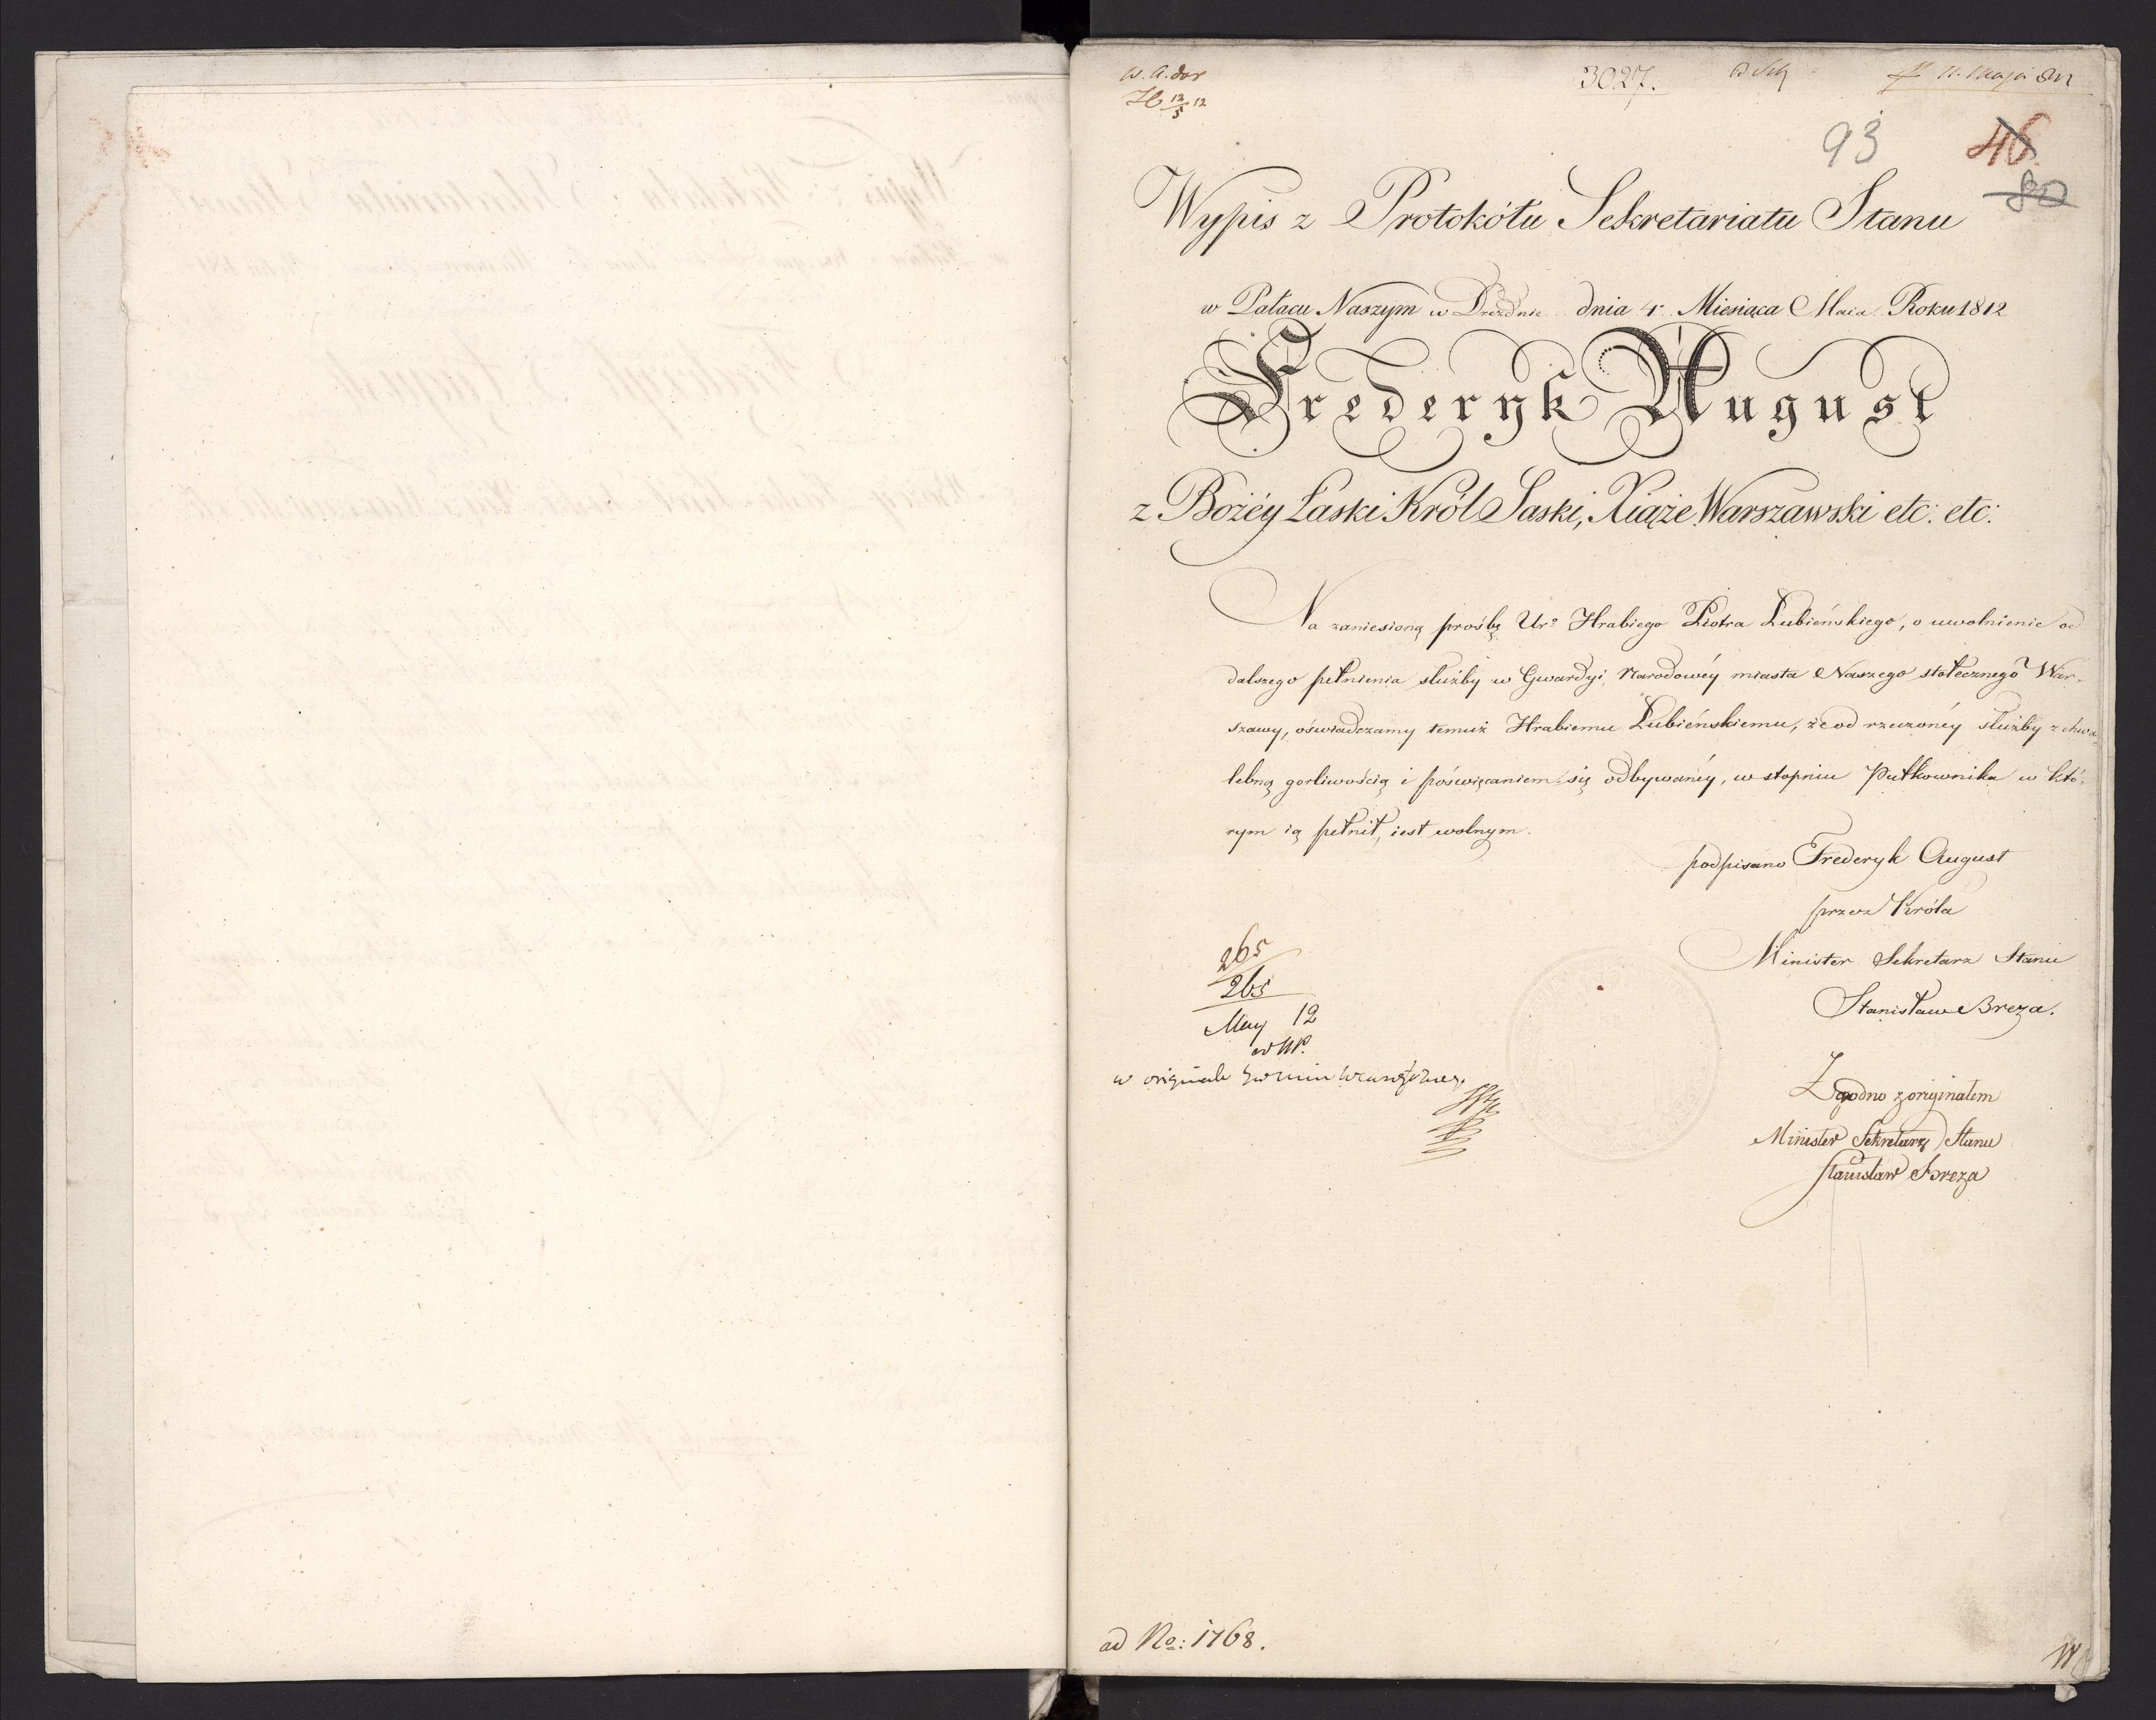 3027.
93
46.
80
Wypis z Protokółu Sekretariatu Stanu
w Pałacu Naszym w Dreznie dnia 4. Miesiąca Maia Roku 1812
Frederyk August
z Bożéy Łaski Król Saski, Xiąże Warszawski etc: etc:
Na zaniesioną prośbę Uro Hrabiego Piotra Łubieńskiego, o uwolnienie od
dalszego pełnienia służby w Gwardyi Narodowéy miasta Naszego stołecznego War-
szawy, oświadczamy temuż Hrabiemu Łubieńskiemu, że od rzeczonéy służby z chwa-
lebną gorliwością i poświęcaniem się odbywanéy, w stopniu Pułkownika w któ-
rym ią pełnił, iest wolnym.
podpisano Frederyk August
przez Króla
Minister Sekretarz Stanu
Stanisław Breza.
265
265
May 12
Zgodno z originałem
Minister Sekretarz Stanu
Stanisław Breza
w originale
ad No: 1768.